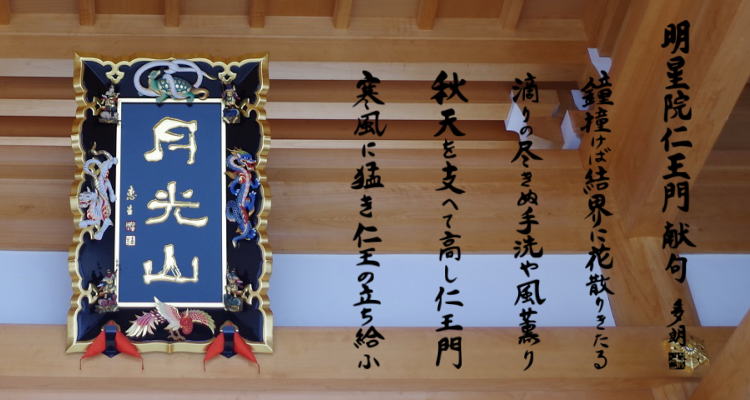 明星院仁王門献句 多明
鐘撞けば結界に花散りきたる
滴りの尽きぬ手洗や風薫り
秋天を支へて高し仁王門
寒風に猛き仁王の立ち給ふ
月光山